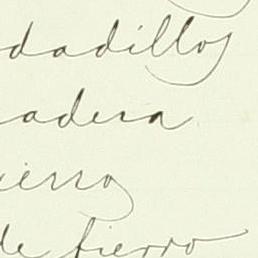 dadillos
adera
ierro
de fierro